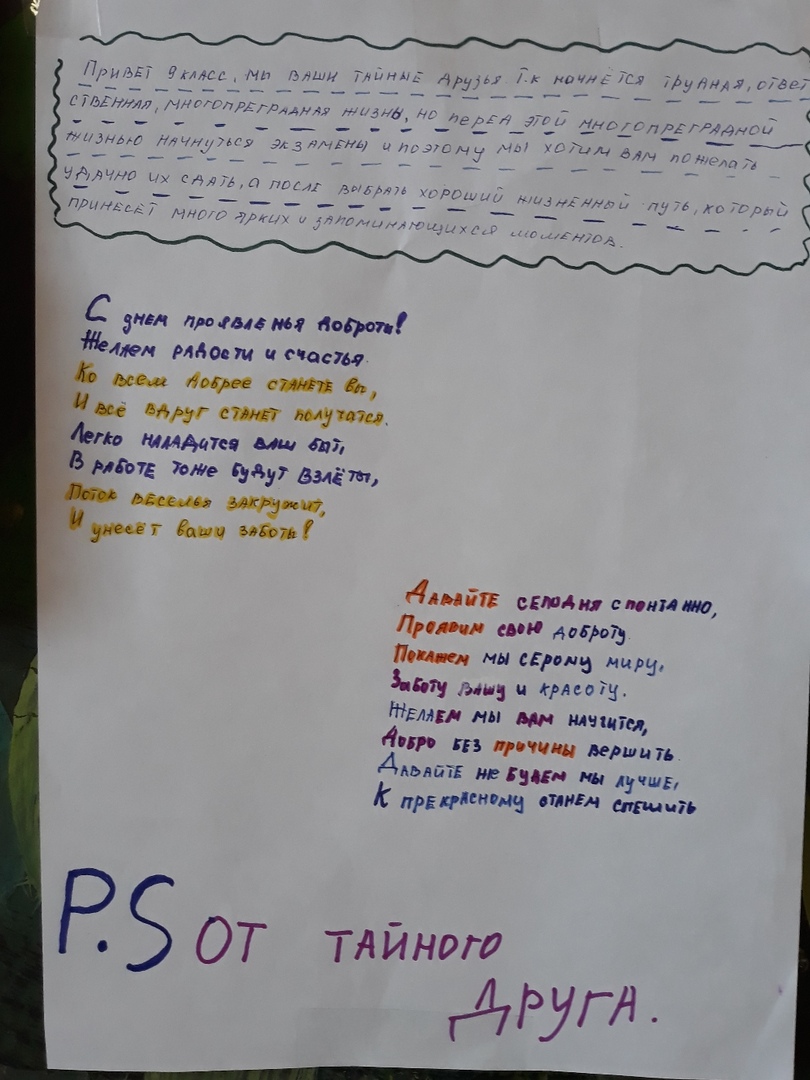 Привет 9 класс, мы ваши тайные друзья. Т.к начнётся трудная, ответ
ственная, многопреградная жизнь, но перед этой многопреградной
жизнью начнуться экзамены и поэтому мы хотим вам пожелать
удачно их сдать, а после выбрать хороший жизненный путь, который
принесёт много ярких и запоминающихся моментов.
С днем проявленья доброты!
Желаем радости и счастья.
Ко всем добрее станете вы,
И всё вдруг станет получатся.
Легко наладится ваш быт,
В работе тоже будут взлёты,
Поток веселья закружит,
И унесёт ваши заботы!
Давайте сегодня спонтанно,
Проявим свою доброту
Покажем мы серому миру,
Заботу вашу и красоту.
Желаем мы вам научится,
Добро без причины вершить.
Давайте же будем мы лучше,
К прекрасному станем спешить
P.S от тайного
друга.